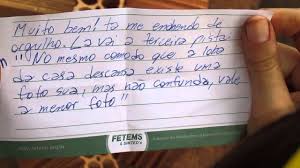 Muito bem! ta me enchendo de
orgulho. La vai a terceira pista:
"No mesmo comodo que a lata
da casa descansa existe uma
foto sua, mas não confunda, vale
a menor foto."
FETEMS